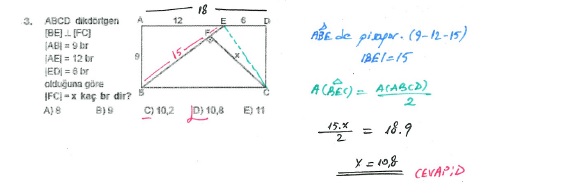 18
3. ABCD dikdörtgen
[BE] ⊥ [FC]
|AB| = 9 br
|AE| = 12 br
|ED| = 6 br
olduğuna göre
|FC| = x kaç br dir?
A) 8 B) 9 C) 10,2 D) 10,8 E) 11
A 12 E 6 D
F
15
9
B C
ABE de pisagor. (9-12-15)
|BE| = 15
A(BEC) = A(ABCD) / 2
15.x / 2 = 18.9
x = 10,8
CEVAP: D